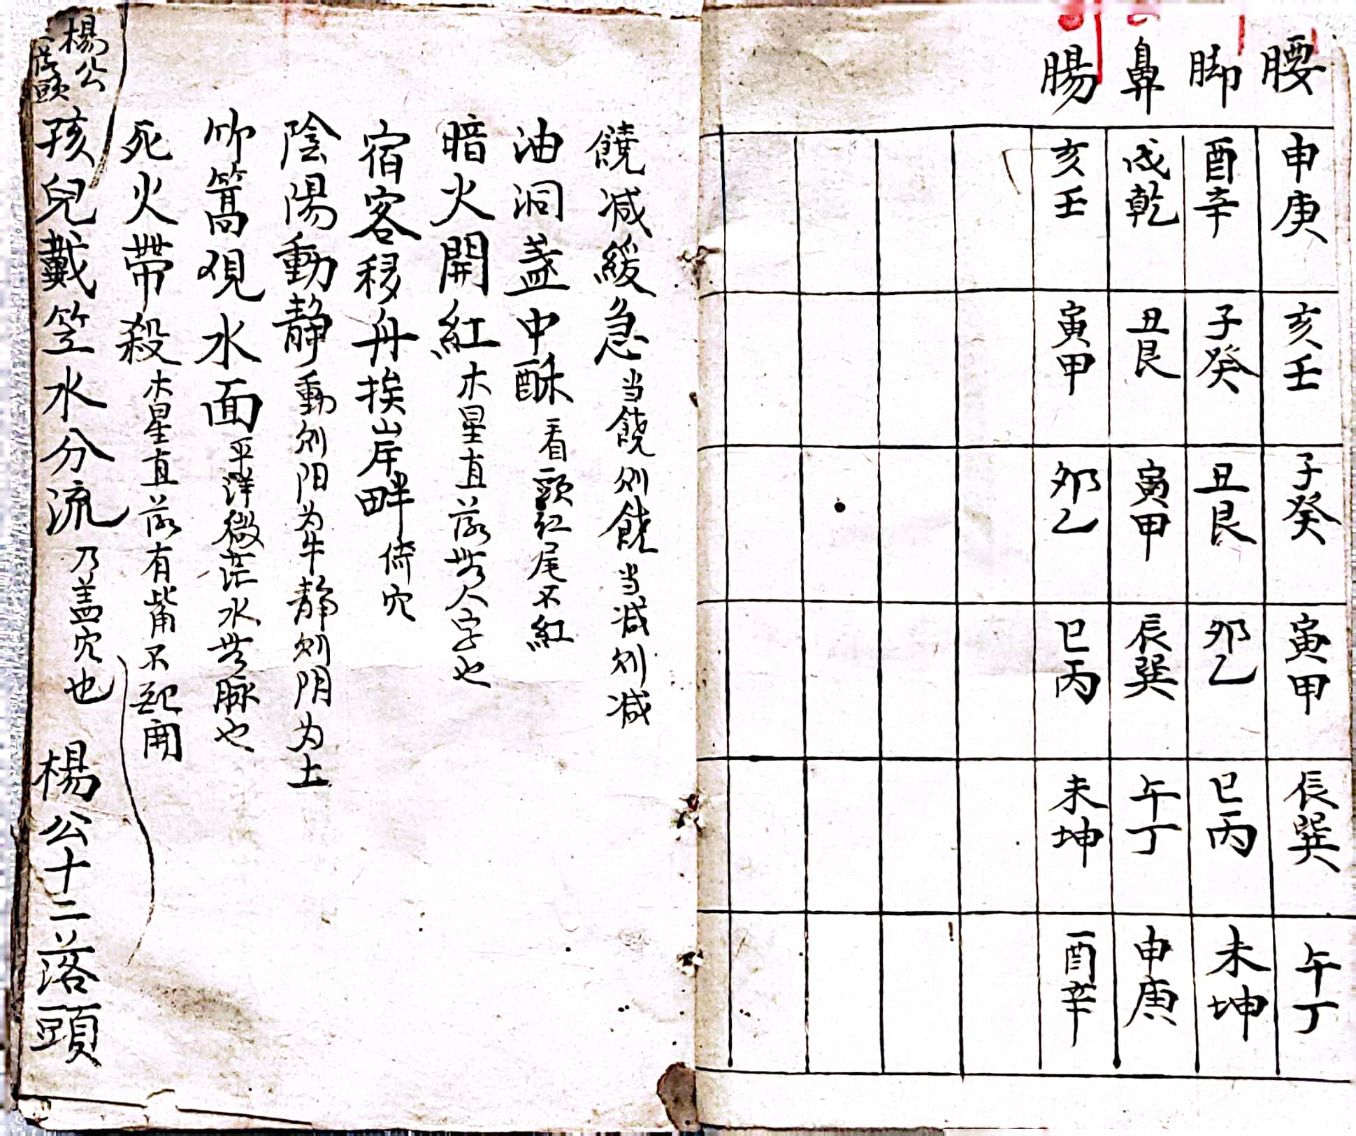 腰 申庚 亥壬 子癸 寅甲 辰巽 午丁
脚 酉辛 子癸 丑艮 夘乙 巳丙 未坤
鼻 戌乾 丑艮 寅甲 辰巽 午丁 申庚
腸 亥壬 寅甲 夘乙 巳丙 未坤 酉辛
饒减緩急 当饒则饒当减则减
油洞盏中酥 看頭红尾不紅
暗火開紅 木星直落世人字也
宿客移舟挨岸畔 倚穴
陰陽動静 動则阳为牛静则阴为土
篙覌水面 平洋微茫水世脉也
死火帶殺 木星直落有嘴不起開
孩兒戴笠水分流 乃盖穴也 楊公十二落頭
楊公
頭